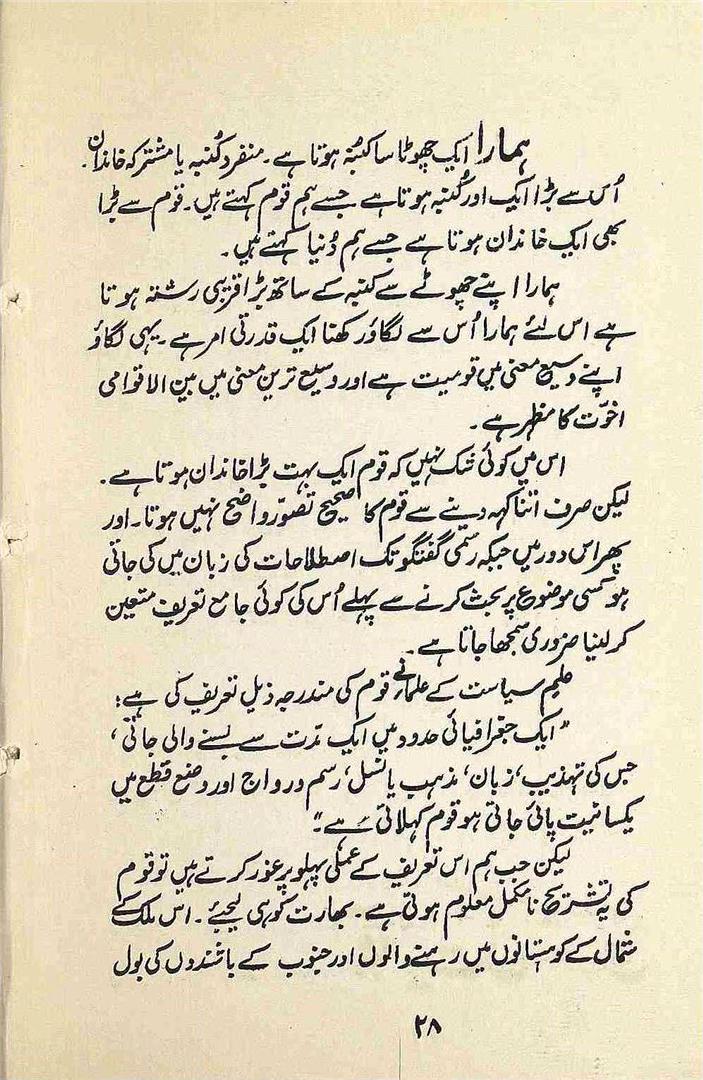 ہمارا ایک چھوٹا سا کنبہ ہوتا ہے۔ منفرد کُنبہ یا مشترکہ خاندان۔
اُس سے بڑا ایک اور کُنبہ ہوتا ہے جسے ہم قوم کہتے ہیں۔ قوم سے بڑا
بھی ایک خاندان ہوتا ہے جسے ہم دُنیا کہتے ہیں۔
ہمارا اپنے چھوٹے سے کنبہ کے ساتھ بڑا قریبی رشتہ ہوتا
ہے اس لئے ہمارا اُس سے لگاؤ رکھنا ایک قدرتی امر ہے۔ یہی لگاؤ
اپنے وسیع معنی میں قومیت ہے اور وسیع ترین معنی میں بین الاقوامی
اخوّت کا مظہر ہے۔
اس میں کوئی شک نہیں کہ قوم ایک بہت بڑا خاندان ہوتا ہے۔
لیکن صرف اتنا کہہ دینے سے قوم کا صحیح تصوّر واضح نہیں ہوتا۔ اور
پھر اس دور میں جبکہ رسمی گفتگو تک اصطلاحات کی زبان میں کی جاتی
ہو کسی موضوع پر بحث کرنے سے پہلے اُس کی کوئی جامع تعریف متعین
کر لینا ضروری سمجھا جاتا ہے۔
علمِ سیاست کے علماء نے قوم کی مندرجہ ذیل تعریف کی ہے؛
”ایک جغرافیائی حدود میں ایک مدّت سے بسنے والی جاتی،
جس کی تہذیب، زبان، مذہب یا نسل، رسم و رواج اور وضع قطع میں
یکسانیت پائی جاتی ہو قوم کہلاتی ہے۔“
لیکن جب ہم اس تعریف کے عملی پہلو پر غور کرتے ہیں تو قوم
کی یہ تشریح نامکمل معلوم ہوتی ہے۔ بھارت کو ہی لیجیئے۔ اس ملک کے
شمال کے کوہستانوں میں رہنے والوں اور جنوب کے باشندوں کی بول
۲۸